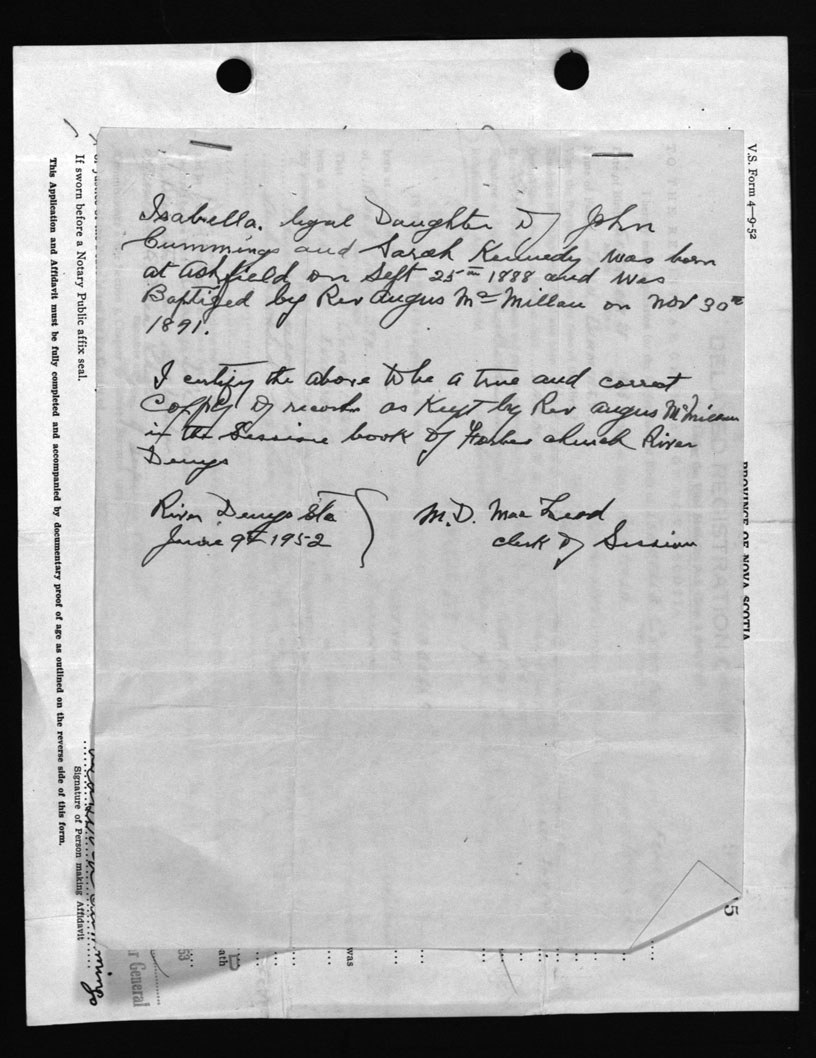 Isabella. legal Daughter of John
Cummings and Sarah Kennedy was born
at Ashfield on Sept 25th 1888 and was
Baptized by Rev Angus McMillan on Nov 30th
1891.
I certify the above to be a true and correct
Coppy of records as Kept by Rev Angus McMillan
in the Session book of Forbes church River
Denys
River Denys Sta
June 9th 1952
M.D. MacLeod
clerk of Session
V.S. Form 4—9-52
PROVINCE OF NOVA SCOTIA
If sworn before a Notary Public affix seal.
This Application and Affidavit must be fully completed and accompanied by documentary proof of age as outlined on the reverse side of this form.
Signature of Person making Affidavit
was
ath
53
r General